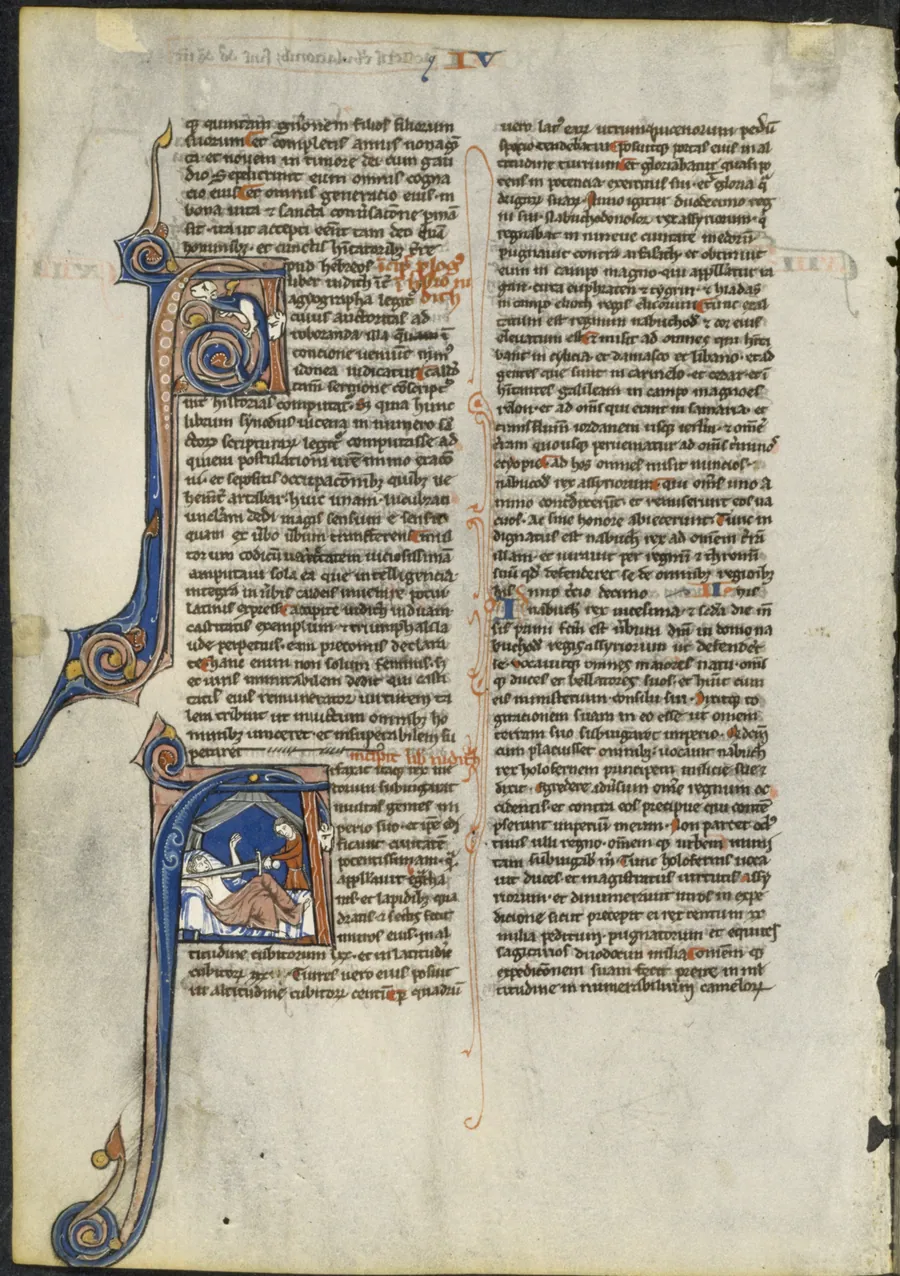 VI
qͣ quintam gñonem filios filiorum
suorum Et completis annis nonagī
ta et nouem in timore dei cum gau
dio Sepelierunt eum omnis cogna
cio eius Et omnis generatio eius in
bona uita et sancta conũsacōne pmā
sit ita ut accepti eēnt tam deo quā
hominibʒ et cunctis hītatoribʒ tr̄e
pud hebreos Icip̄ plog̃
liber iudith īt̃ ī libro iu
agyographa legit̃ dith
cuius auctoritas ad
roboranda illa que ī
concione ueniūt min͛
idonea iudicatur caldō
tam̄ sermone cōscript͛
int̃ historias computat̃ Sꝫ quia hunc
librum synodus nicena in numero sā
ctoꝝ scripturaꝝ legit̃ computasse ad
quieui postulationi ur̄e immo exactō
ni et sepositis occupacōnibʒ quibʒ ue
hemēt̃ artabar huic unam lucubrati
unclam dedi magis sensum e sensu
quam ex ũbo ũbum transferens Multis
tor uro codicū uarietatem uiciosissimā
amputaui sola ea que intelligencia
integra in ũbis caldeis inuenire potui
latinis expressi Accipite iudith uiduam
castitatis exemplum et triumphali la
ude perpetuis eam preconiis declara
te hanc enim non solum feminis sꝫ
et uiris imitabilem dedit qui casti
tatis eius remunerator uirtutem ta
lem tribuit ut inuictum omnibʒ ho
minibʒ uinceret et insuperabilem su
peraret incipit lib̃ iudith
rfaxat itaqʒ rex me
dorum subiugarat
multas gentes im
perio suo et ip̄e edi
ficauit ciuitatē
potentissimam qͣ
appllauit egbtha
nis et lapidibʒ qua
dratis et sectis fecit
muros eius in al
titudine cubitorum lxx et in latitudīe
cubitoꝝ xxx Turres uero eius posuit
in altitudine cubitoꝝ centū p̱ quadrū
uero lat͛ eaꝝ utrumqʒ uicenorum pedū
spacio tendebatur posuitqʒ portas eius in al
titudine turrium Et gloriabatur quasi po
tens in potencia exercitus sui et gloria qͣ
drigaꝝ suaꝝ Anno igitur duodecimo reg
ni sui nabuchodonosor rex assyriorum qͥ
regnabat in niniue ciuitate medorū
pugnauit contra arfaxath et obtinuit
eum in campo magno qui appllatur ra
gau circa euphraten et tygrin et hiadas
in campo erioch regis elicorum Tunc exal
tatum est regnum nabuchod̃ et cor eius
eleuatum est Et misit ad omnes qui hīta
bant in cylicia et damasco et libano et ad
gentes que sunt in carmelo et cedar et ī
hītantes galileam in campo magno es
relon et ad om̄s qui erant in samaria et
trans flumē iordanem usqʒ ierl̄m et omē
tr̄am quousqʒ perueniatur ad om̄s tminos
ethyopie Ad hos omnes misit nuncios
nabucod̃ rex assyriorum qui om̄s uno a
nimo contdixerūt et remiserunt eos ua
cuos ac sine honore abiecerunt Tunc in
dignatus est nabuch̃ rex ad omem tr̄ā
illam et iurauit per regnū et thronū
suū qd̃ defenderet se de omnibʒ regionibʒ
his Anno tercio decimo II his
nabuch̃ rex uicesima et scd̃a die m̄
sis primi fcm̄ est ũbum dn̄i in domo na
buchod̃ regis assyriorum ut defender&
se vocauitqʒ omnes maiores natu om̄s
qʒ duces et bellatores suos et hūit cum
eis ministerium consilii sui Dixitqʒ co
gitationem suam in eo esse ut omem
terram suo subiugaret imperio Qd̃
cum placuisset omnibʒ uocauit nabuch̃
rex holofernem principem milicie sue et
dixit Egredere aduersum om̄e regnum oc
cidentis et contra eos precipue qui contē
pserunt imperiū meum Non parcet ocl͛
tuus ulli regno omem qʒ urbem muni
tam subiugabis m̄ Tunc holofernis uoca
uit duces et magistratus uirtutis assy
riorum et dinumerauit uiros in expe
dicione sicut precepit ei rex centum xx
milia peditum pugnatorum et equites
sagitarios duodecim milia Omem qʒ
expedicōnem suam fecit preire in ml
titudine innumerabilium cameloꝝ